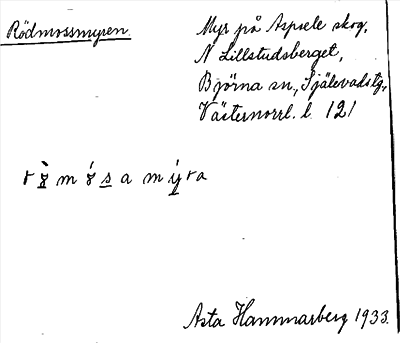 Rödmossmyren.
Myr på Aspsele skog,
N Lillstudsberget,
Björna sn, Själevads tg,
Västernorrl. l. 121
Asta Hammarberg 1933.